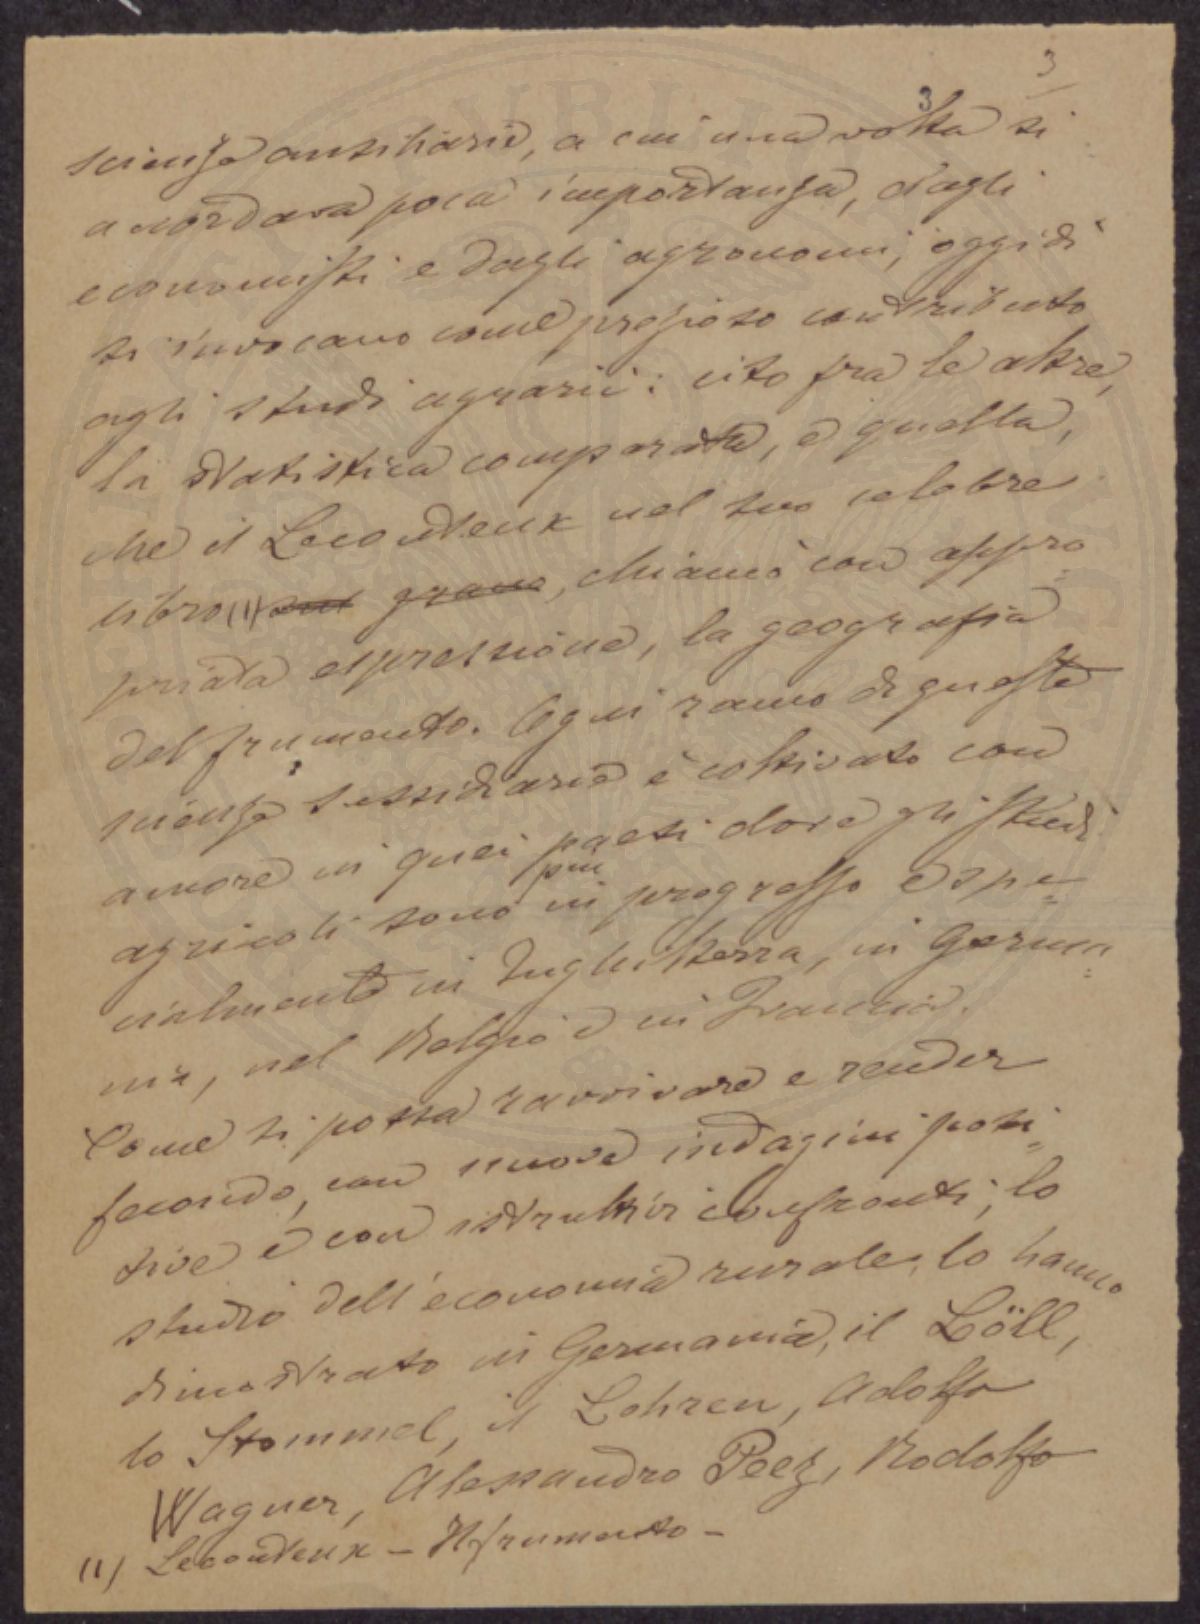 3
3
scienze ausiliarie, a cui una volta si
accordava poca importanza, dagli
economisti e dagli agronomi, oggidì
si invocano come prezioso contributo
agli studi agrarii: cito fra le altre,
la statistica comparata, e quella,
che il Lecouteux nel suo celebre
libro (1) sul grano, chiamò con appro=
priata espressione, la geografia
del frumento. Ogni ramo di queste
scienze sussidiarie è coltivato con
amore in quei paesi dove gli studi
agricoli sono più in progresso e spe=
cialmente in Inghilterra, in Germa=
nia, nel Belgio e in Francia.
Come si possa ravvivare e render
fecondo, con nuove indagini posi=
tive e con istruttivi confronti, lo
studio dell'economia rurale, lo hanno
dimostrato in Germania, il Löll,
lo Stommel, il Lohren, Adolfo
Wagner, Alessandro Peez, Rodolfo
(1) Lecouteux - Il frumento -